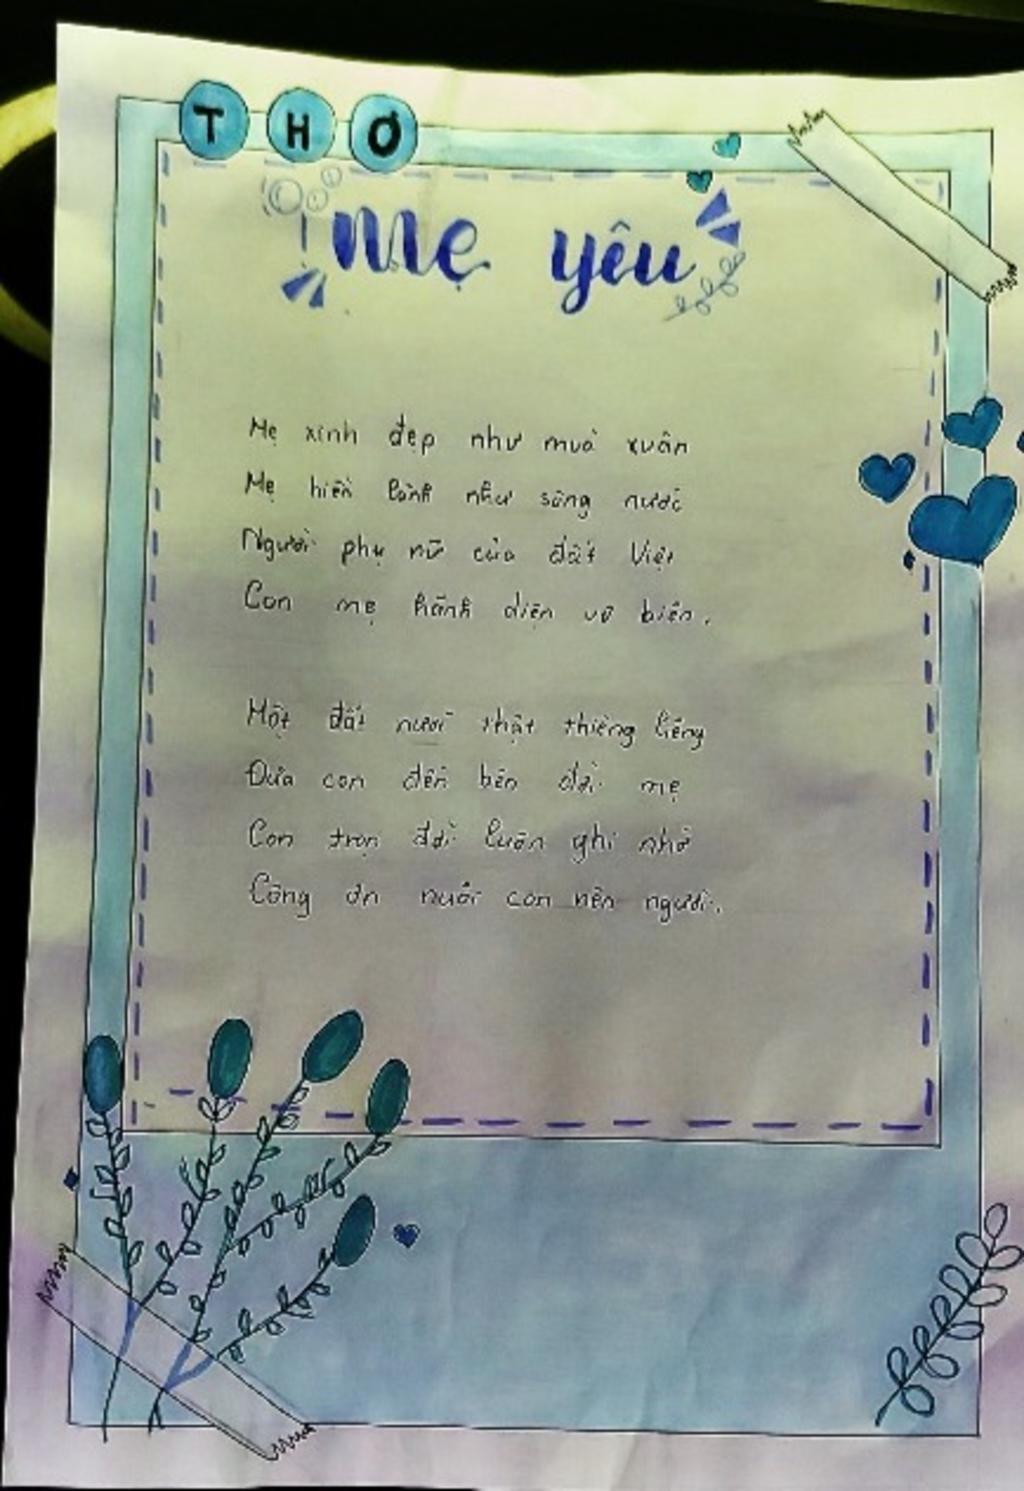 THƠ
Mẹ yêu
Mẹ xinh đẹp như muà xuân
Mẹ hiền lành như sông nước
Người phụ nữ của đất Việt
Con mẹ hãnh diện vô biên.
Một đất nước thật thiêng liêng
Đưa con đến bên đời mẹ
Con trọn đời luôn ghi nhớ
Công ơn nuôi con nên người.